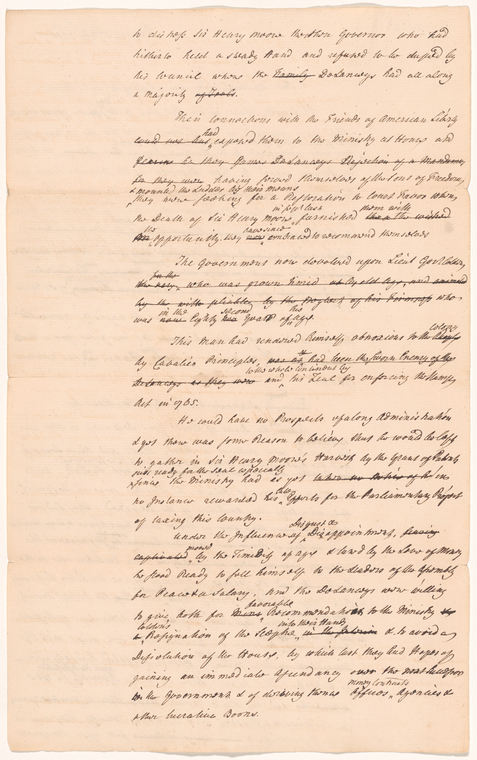 to distress Sir Henry Moore the then Governor who had
hitherto held a steady Hand and refused to be duped by
his Council where the Family DeLanceys had all along
a Majority of Tools.
Their Connections with the Friends of American Liberty
had
could not but exposed them to the Ministry at Home and
for they were having forced themselves of the Sons of Freedom,
& mounted the Ladder by their means
they were looking for a Restoration to Court Favor when,
the Death of Sir Henry Moore, furnished them with
the
opportunity they have since embraced to recommend themselves
The Government now devolved upon Lieut Govr Colden,
who was grown timid by old age, and
by the by the Prospect of his who
in the second his
was now Eighty Year of age.
This Man had rendered himself obnoxious to the Colony
by Cavalier Principles, had been the Sworn Enemy of the
DeLanceys as they were and his Zeal for enforcing the Stamp
Act in 1765.
He could have no Prospects of a long Administration
& yet there was some Reason to believe that he would be left
to gather in Sir Henry Moore's Harvest by the Grant of Patents
just ready for the Seal especially
since the Ministry had as yet in
no Instance rewarded his Efforts for the Parliamentary Project
of taxing this Country.
Disgust &
Under the Influence of Disappointment,
moved
captivated by the Timidity of age & lured by the Love of Money
he stood Ready to sell himself to the Leaders of the Assembly
for Peace & a Salary. And the DeLanceys were willing
favorable
to give both for Recommendations to the Ministry
Coldens into their Hands
a Resignation of the Sceptre in the Interim & to avoid a
Dissolution of the House, by which last they had Hopes of
gaining an immediate Ascendancy over the
money Contracts
in the Government & of deriving thence Offices, Agencies &
other lucrative Boons.